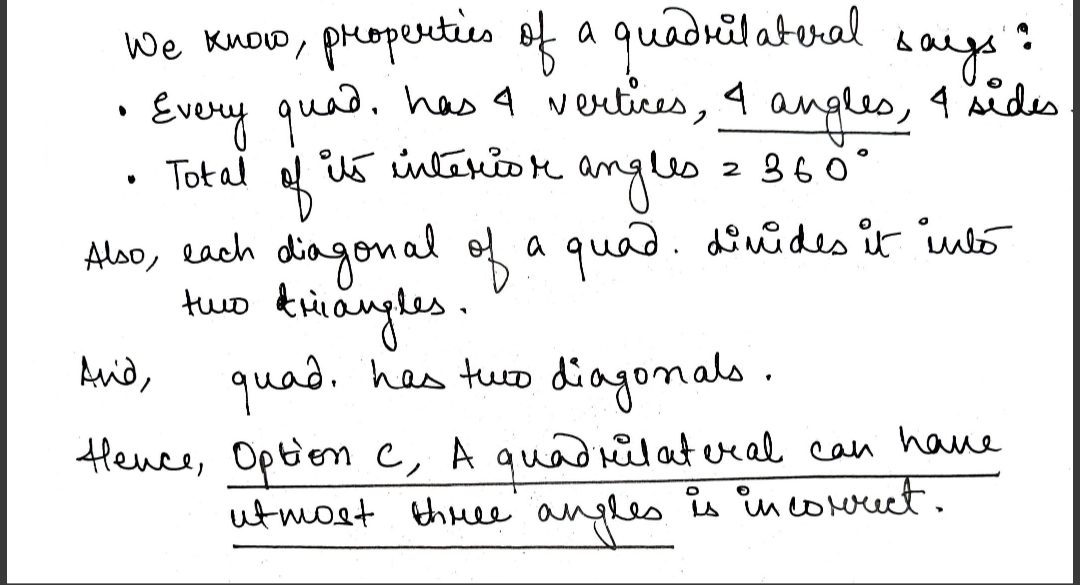 We know, properties of a quadrilateral says:
• Every quad. has 4 vertices, 4 angles, 4 sides.
• Total of its interior angles = 360°
Also, each diagonal of a quad. divides it into
two triangles.
And, quad. has two diagonals.
Hence, Option C, A quadrilateral can have
utmost three angles is incorrect.